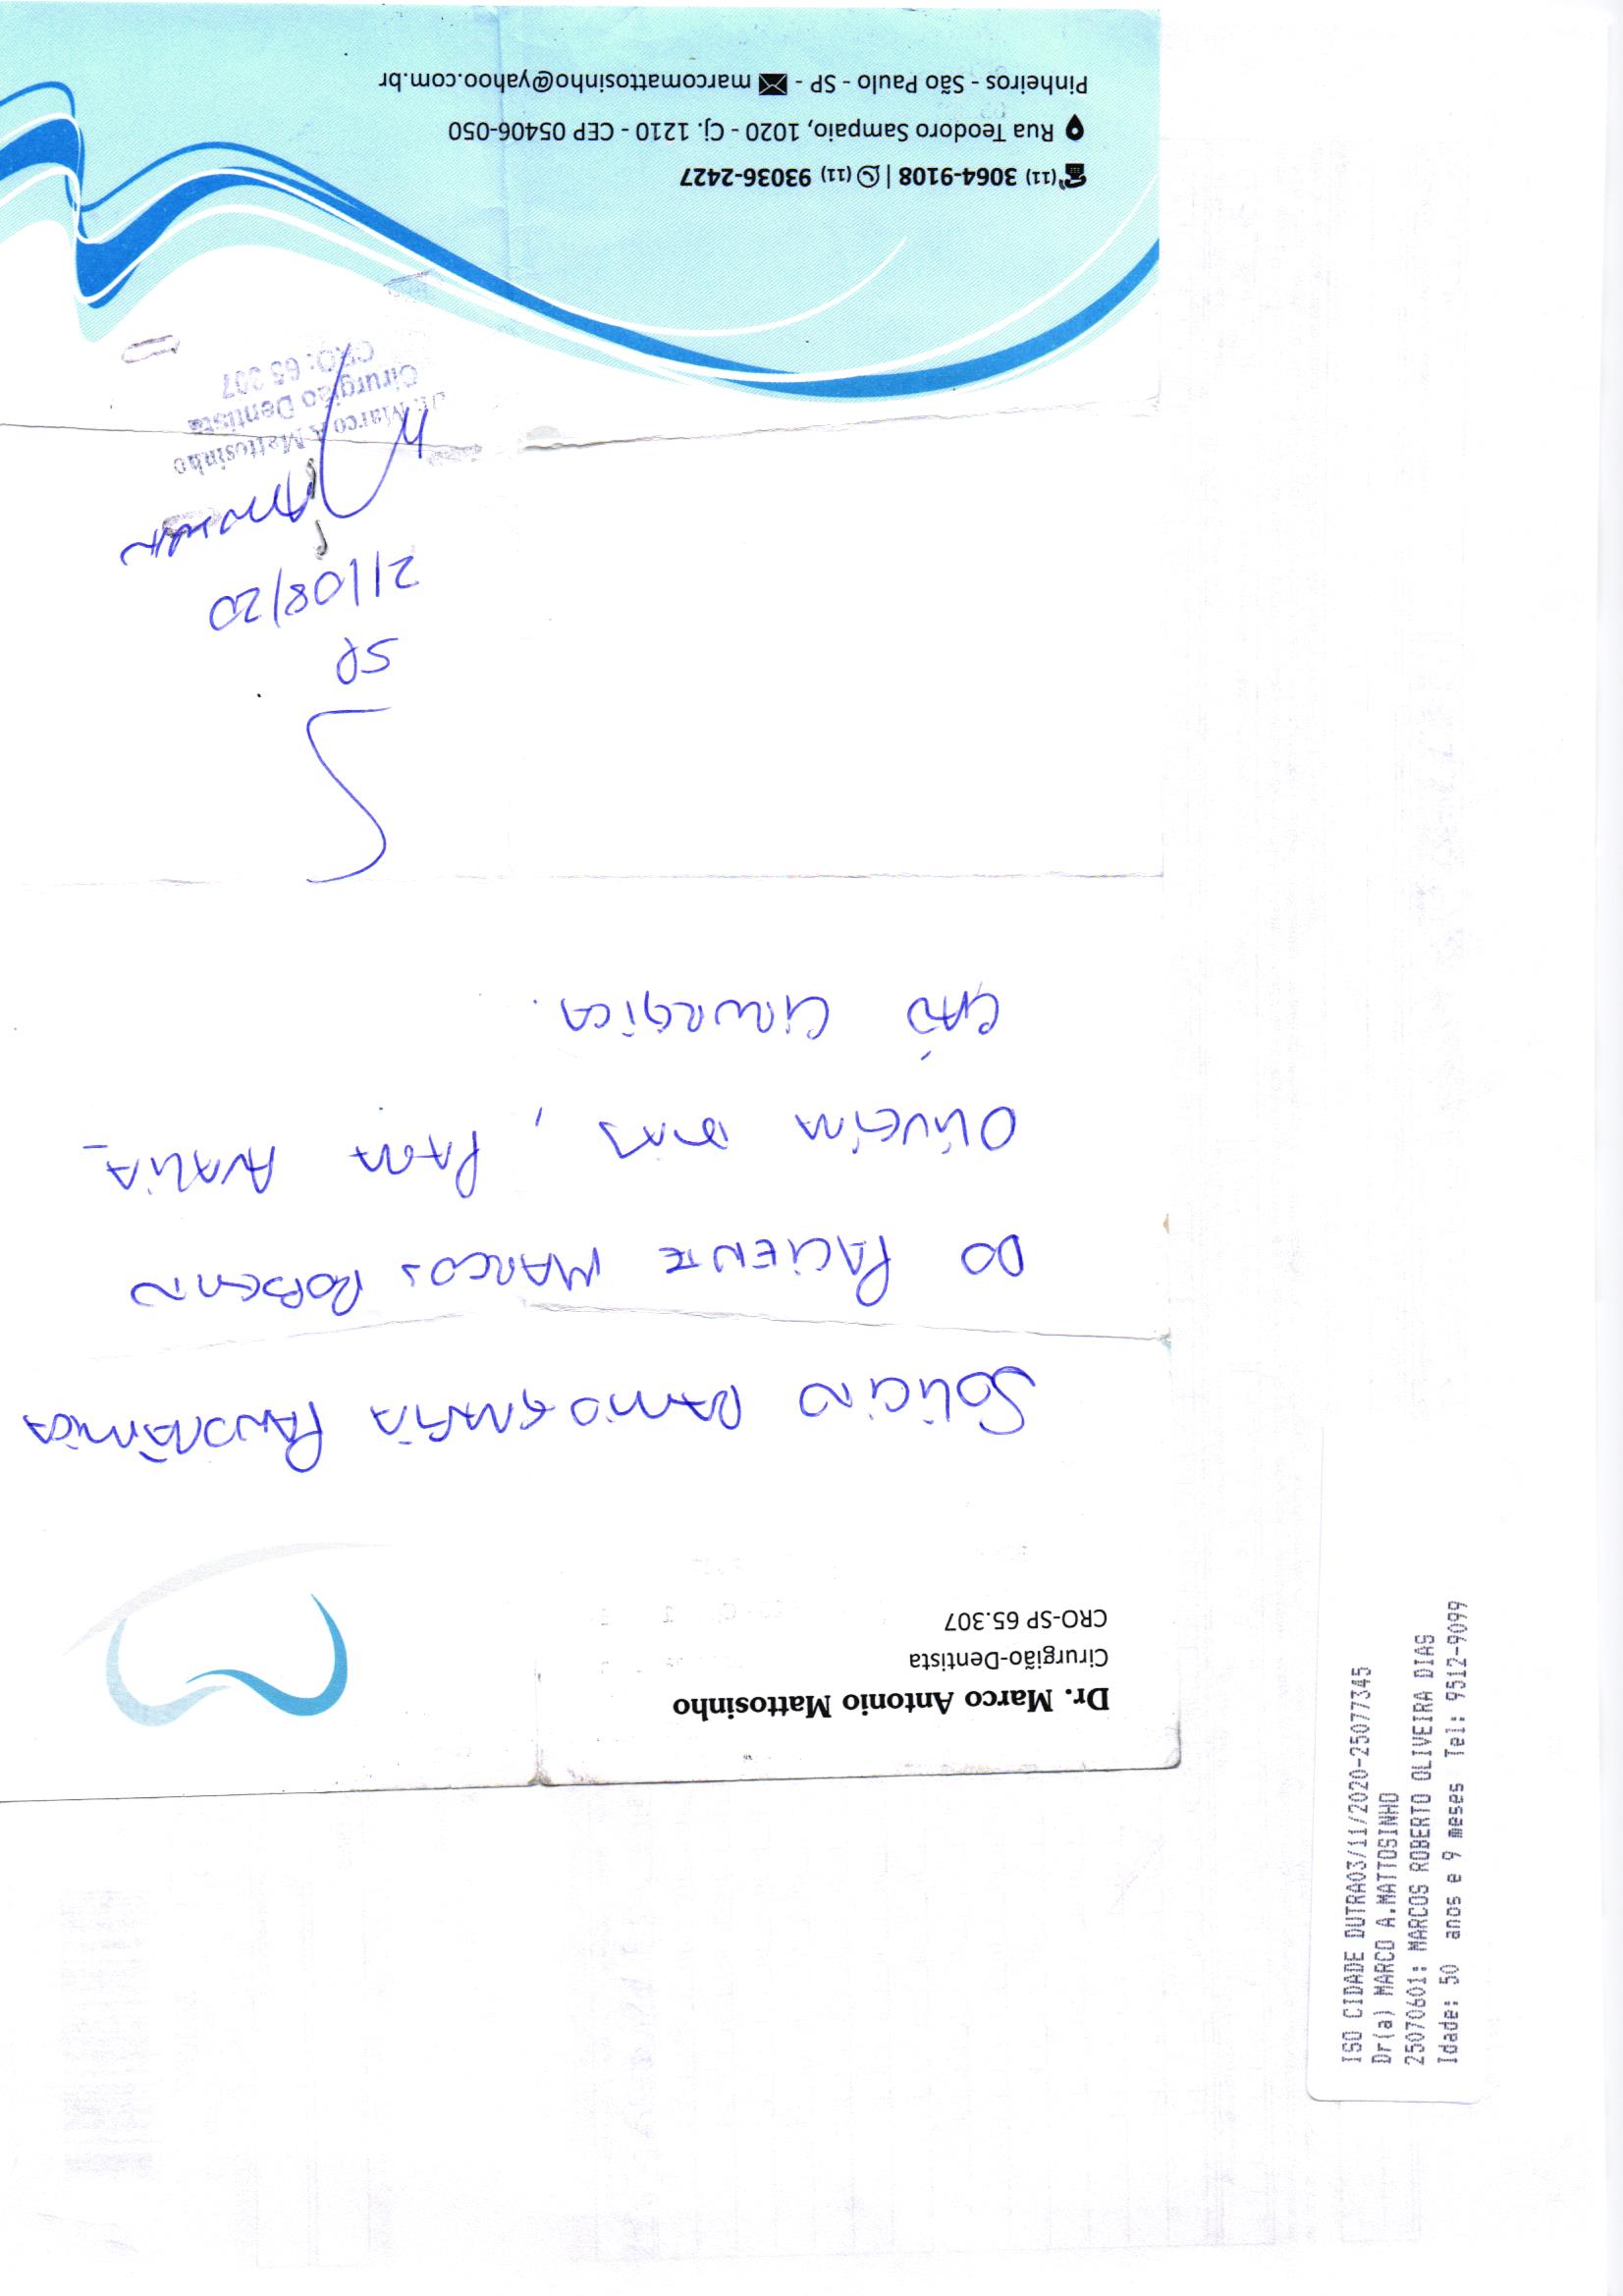 Dr. Marco Antonio Mattosinho
Cirurgião-Dentista
CRO-SP 65.307
SOLICITO RADIOGRAFIA PANORÂMICA
DO PACIENTE MARCOS ROBERTO
OLIVEIRA DIAS, PARA AVALIA-
ÇÃO CIRURGICA.
SP
21/08/20
Dr. Marco A Mattosinho
Cirurgião Dentista
CRO: 65 307
(11) 3064-9108 | (11) 93036-2427
Rua Teodoro Sampaio, 1020 - Cj. 1210 - CEP 05406-050
Pinheiros - São Paulo - SP - marcomattosinho@yahoo.com.br
ISO CIDADE DUTRA03/11/2020-25077345
Dr(a) MARCO A.MATTOSINHO
25070601: MARCOS ROBERTO OLIVEIRA DIAS
Idade: 50 anos e 9 meses Tel: 9512-9099